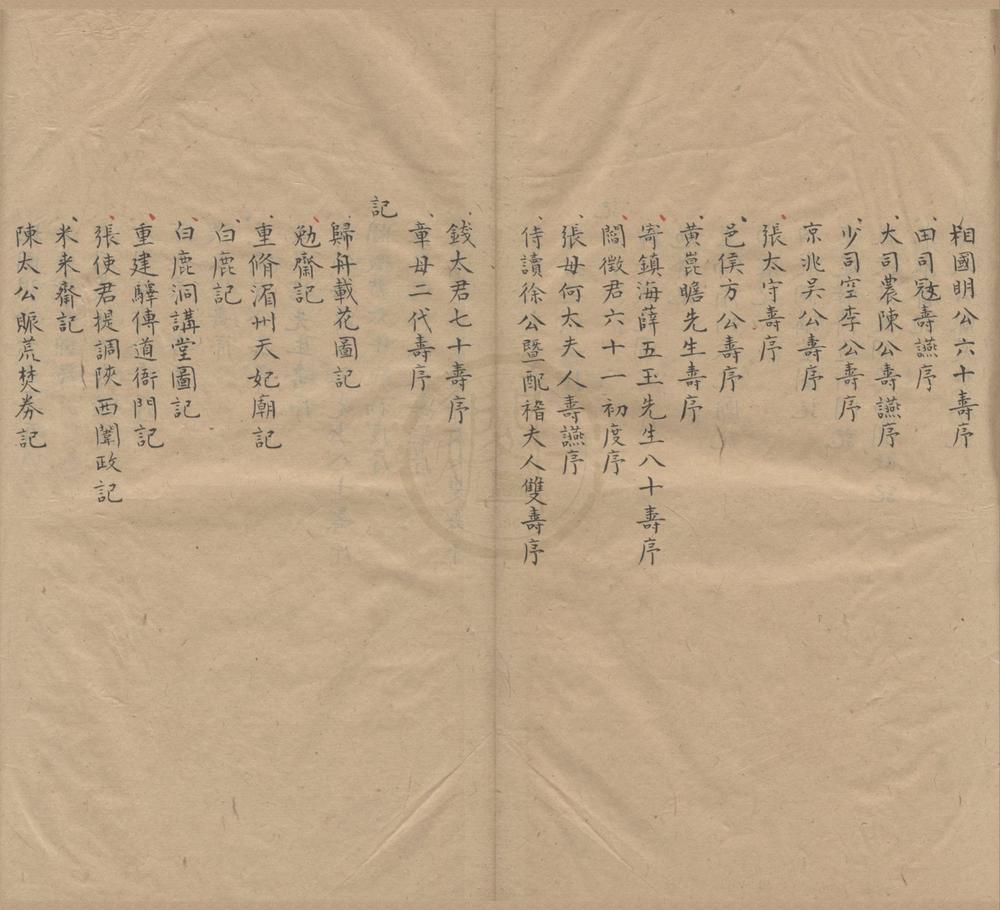 相國明公六十壽序
田司寇壽讌序
大司農陳公壽讌序
少司空李公壽序
京兆吳公壽序
張太守壽序
邑侯方公壽序
黃崑瞻先生壽序
寄鎮海薛五玉先生八十壽序
閻徵君六十一初度序
張母何太夫人壽讌序
侍讀徐公暨配稽夫人雙壽序
錢太君七十壽序
章母二代壽序
記
歸舟載花圖記
勉齋記
重脩湄州天妃廟記
白鹿記
白鹿洞講堂圖記
重建驛傳道衙門記
張使君提調陝西闈政記
米来齋記
陳太公賑荒焚券記